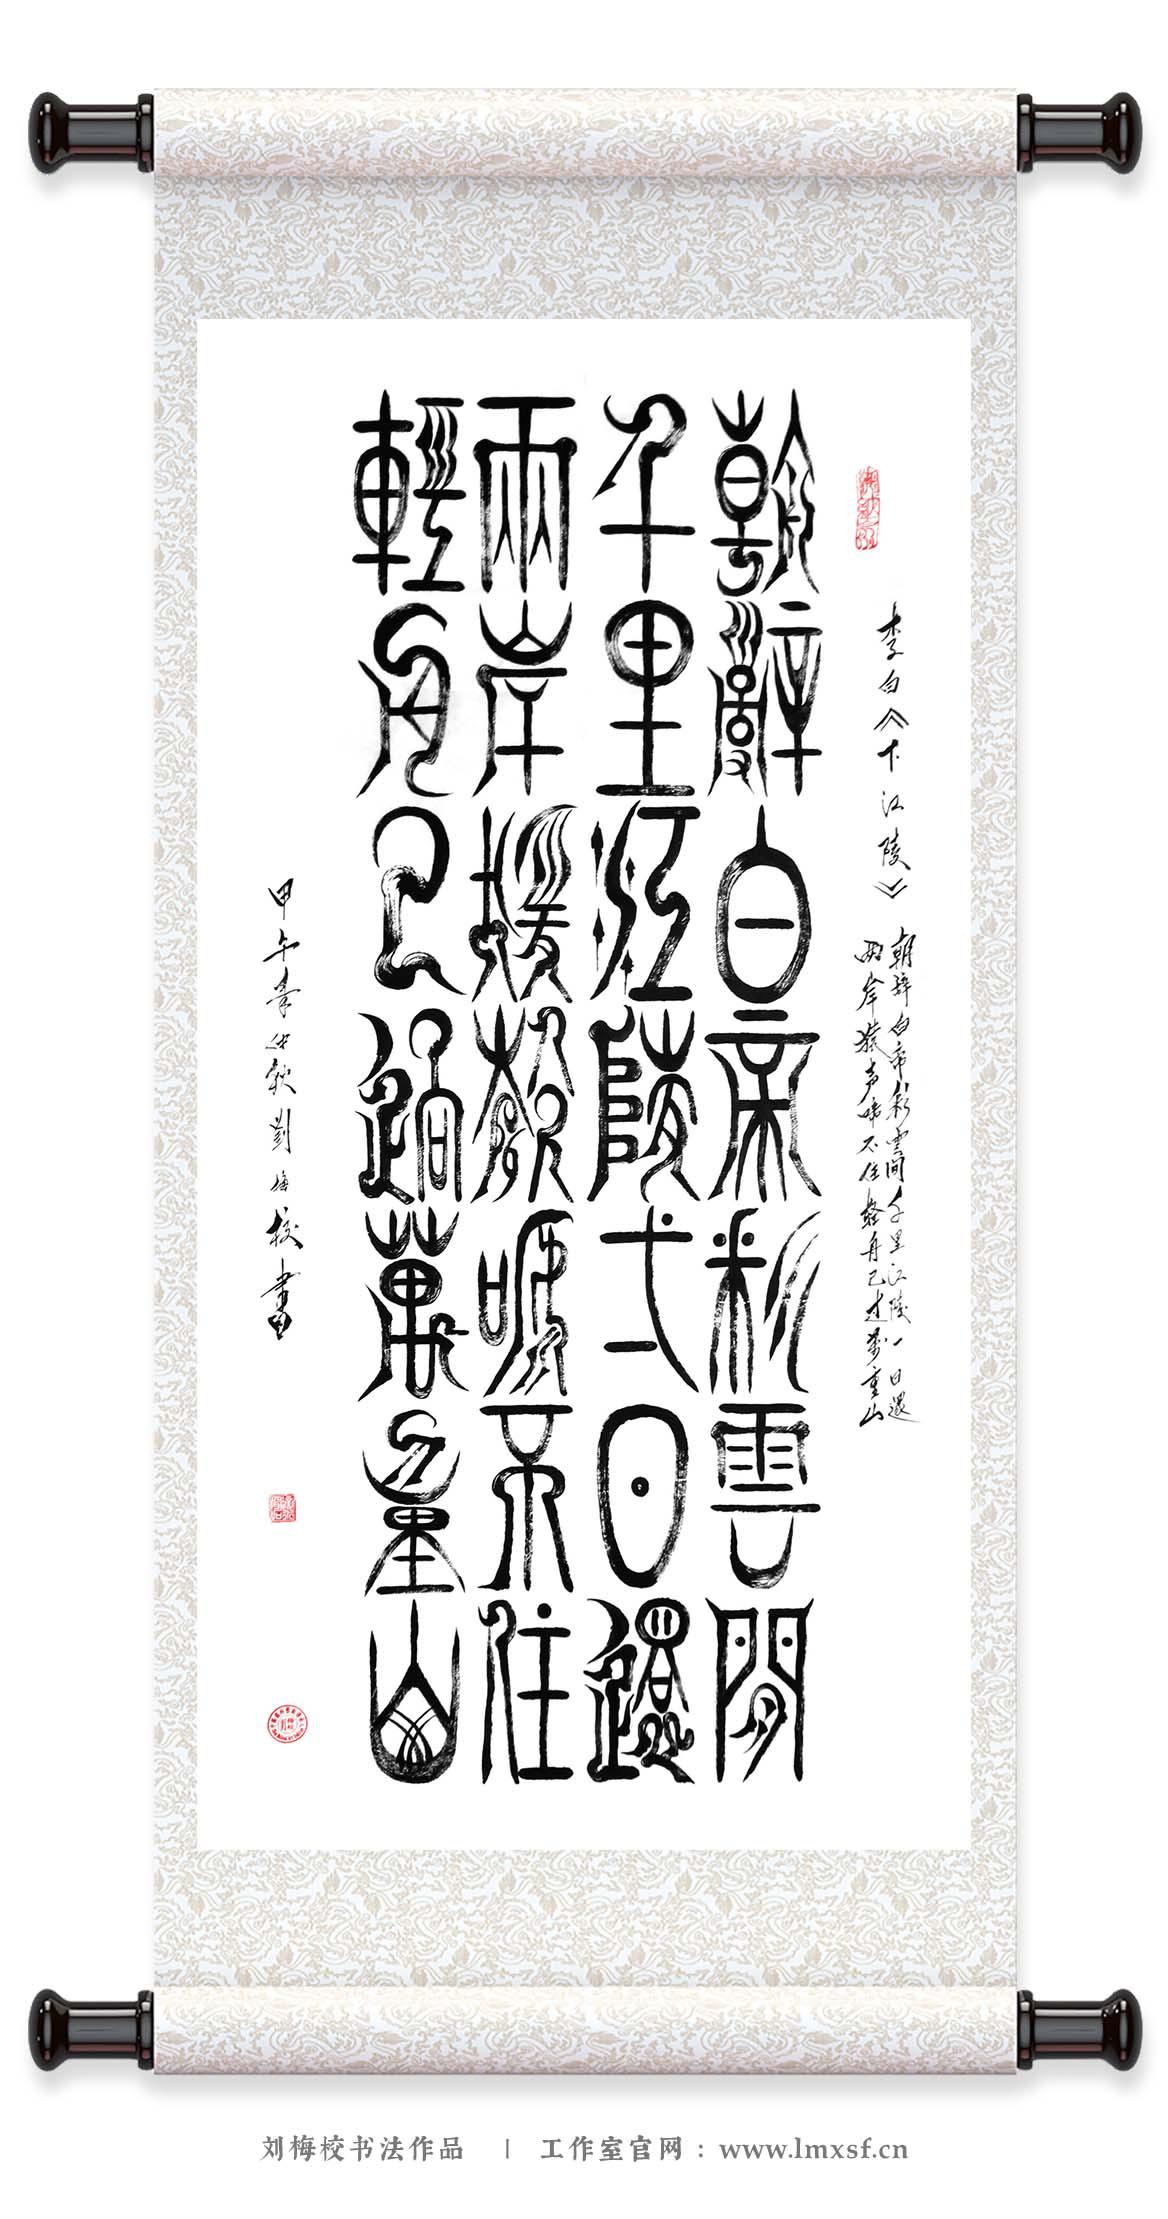 李白《下江陵》
朝辞白帝彩雲间千里江陵一日還
两岸猿声啼不住轻舟已过万重山
朝辭白帝彩雲間
千里江陵弌日還
兩岸猨聲嗁不住
輕舟已過萬重山
甲午年仲秋劉梅校書
刘梅校书法作品 | 工作室官网：www.lmxsf.cn